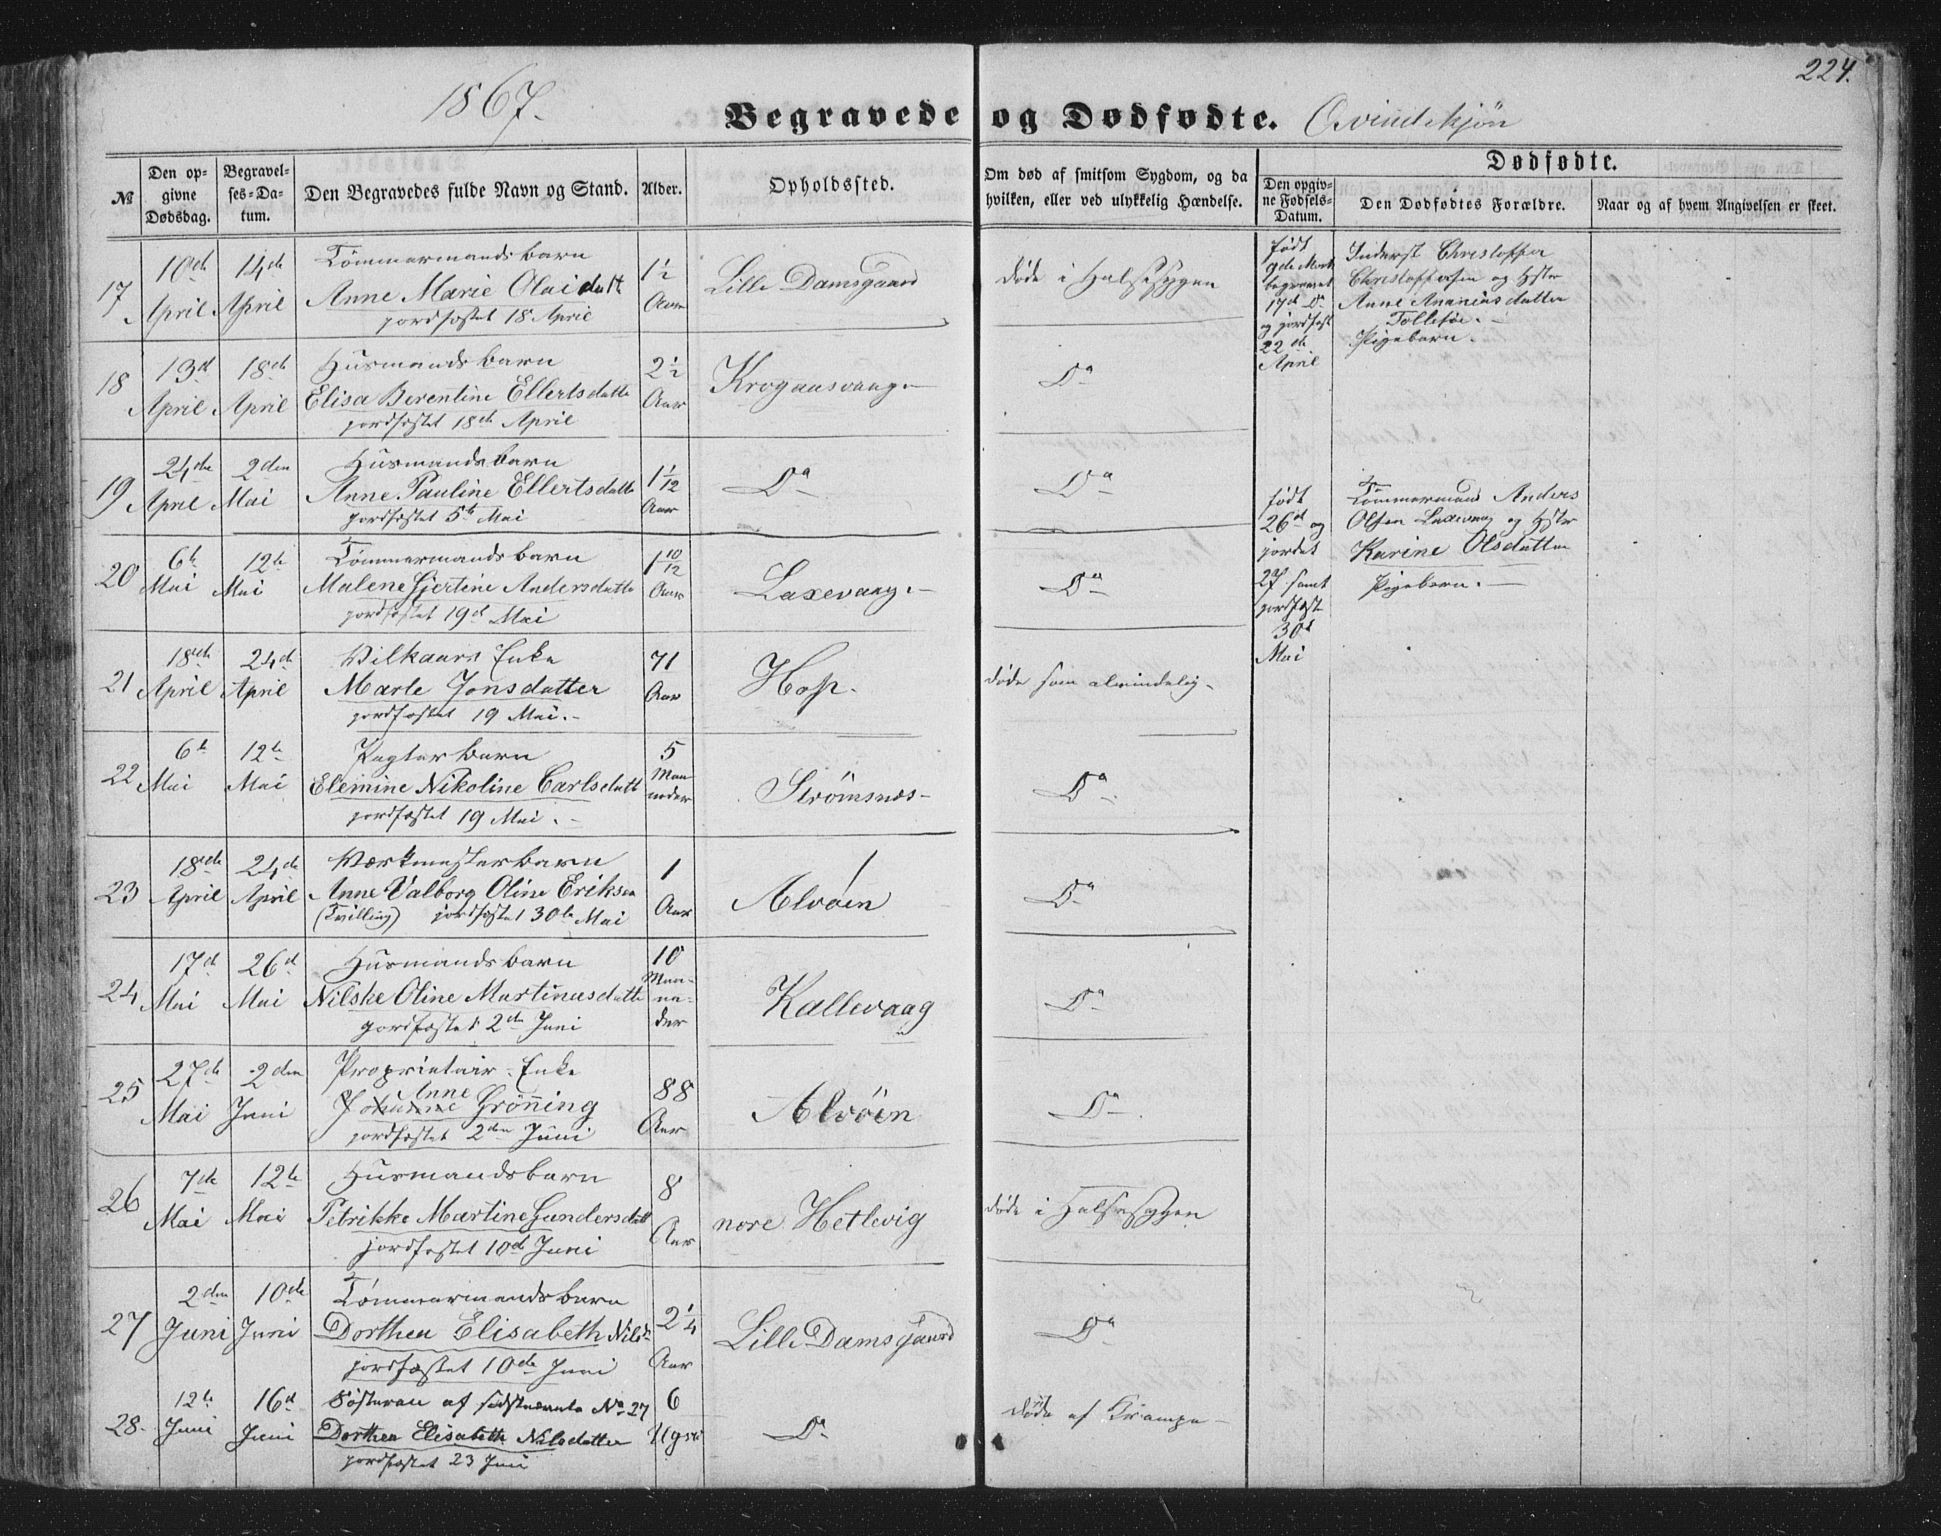 224.
1867.
Begravede og Dødfødte. Qvindekjøn
№
Den opgivne Dødsdag.
Begravelses-Datum.
Den Begravedes fulde Navn og Stand.
Alder.
Opholdssted.
Om død af smitsom Sygdom, og da hvilken, eller ved ulykkelig Hændelse.
Dødfødte.
Den opgivne Fødsels-Datum.
Den Dødfødtes Forældre.
Naar og af hvem Angivelsen er skeet.
17 10de April 14de April Tömmermandsbarn
Anne Marie Olaidatt 1½ Aar Lille Damsgaard døde i Halsesygen
jordfæstet 18 April
18 13d April 18de April Husmandsbarn
Elisa Berentine Ellertsdatte 2½ Aar Krogaasvaag. Do
jordfæstet 18de April
19 24de April 2den Mai Husmandsbarn
Anne Pauline Ellertsdatte 1 1/12 Aar Do Do
jordfæstet 5te Mai
20 6te Mai 12te Mai Tömmermandsbarn
Malene Gjertine Andersdatte 1 10/12 Aar Laxevaag. Do
jordfæstet 19d Mai
21 18de April 24de April Vilkaars Enke
Marte Jonsdatter 71 Aar Hop. døde som almindelig
jordfæstet 19 Mai.
22 6te Mai 12te Mai Pagterbarn
Elemine Nikoline Carlsdatt 5 Maaneder Strömsnæs Do
jordfæstet 19 Mai.
23 18de April 24de April Værkmesterbarn
Anne Valborg Oline Eriksen 1 Aar Alvöen Do
(Tvilling) jordfæstet 30te Mai
24 17de Mai 26d Mai Husmandsbarn
Nilske Oline Martinusdatte 10 Maaneder Kallevaag Do
jordfæstet 2den Juni
25 27de Mai 2den Juni Proprietair-Enke
Anne
Johanne Grönning 88 Aar Alvöen Do
jordfæstet 2den Juni
26 7de Mai 12te Mai Husmandsbarn
Petrikke Martine Gundersdatt 8 Aar nore Hetlevig døde i Halsesygen
jordfæstet 10d Juni
27 2den Juni 10de Juni Tömmermandsbarn
Dorthea Elisabeth Nilsd 2¼ Aar Lille Damsgaard Do
jordfæstet 10de Juni
28. 12te Juni 16d Juni Søsteren af sidstnævnte No 27 6 Uger Do døde af Krampe
Dorthea Elisabeth Nilsdatter
jordfæstet 23 Juni
født
9de Marts
begravet
17d Do
og jordfæst
22de
April
Inderst Christoffer
Christoffersen og Hstr
Anne Ananiasdatter
Pigebarn.
født
26d og
jordet
27 samt
jordfæst
30d
Mai
Tömmermand Anders
Olsen Laxevaag og Hstr
Karine Olsdatter
Pigebarn.